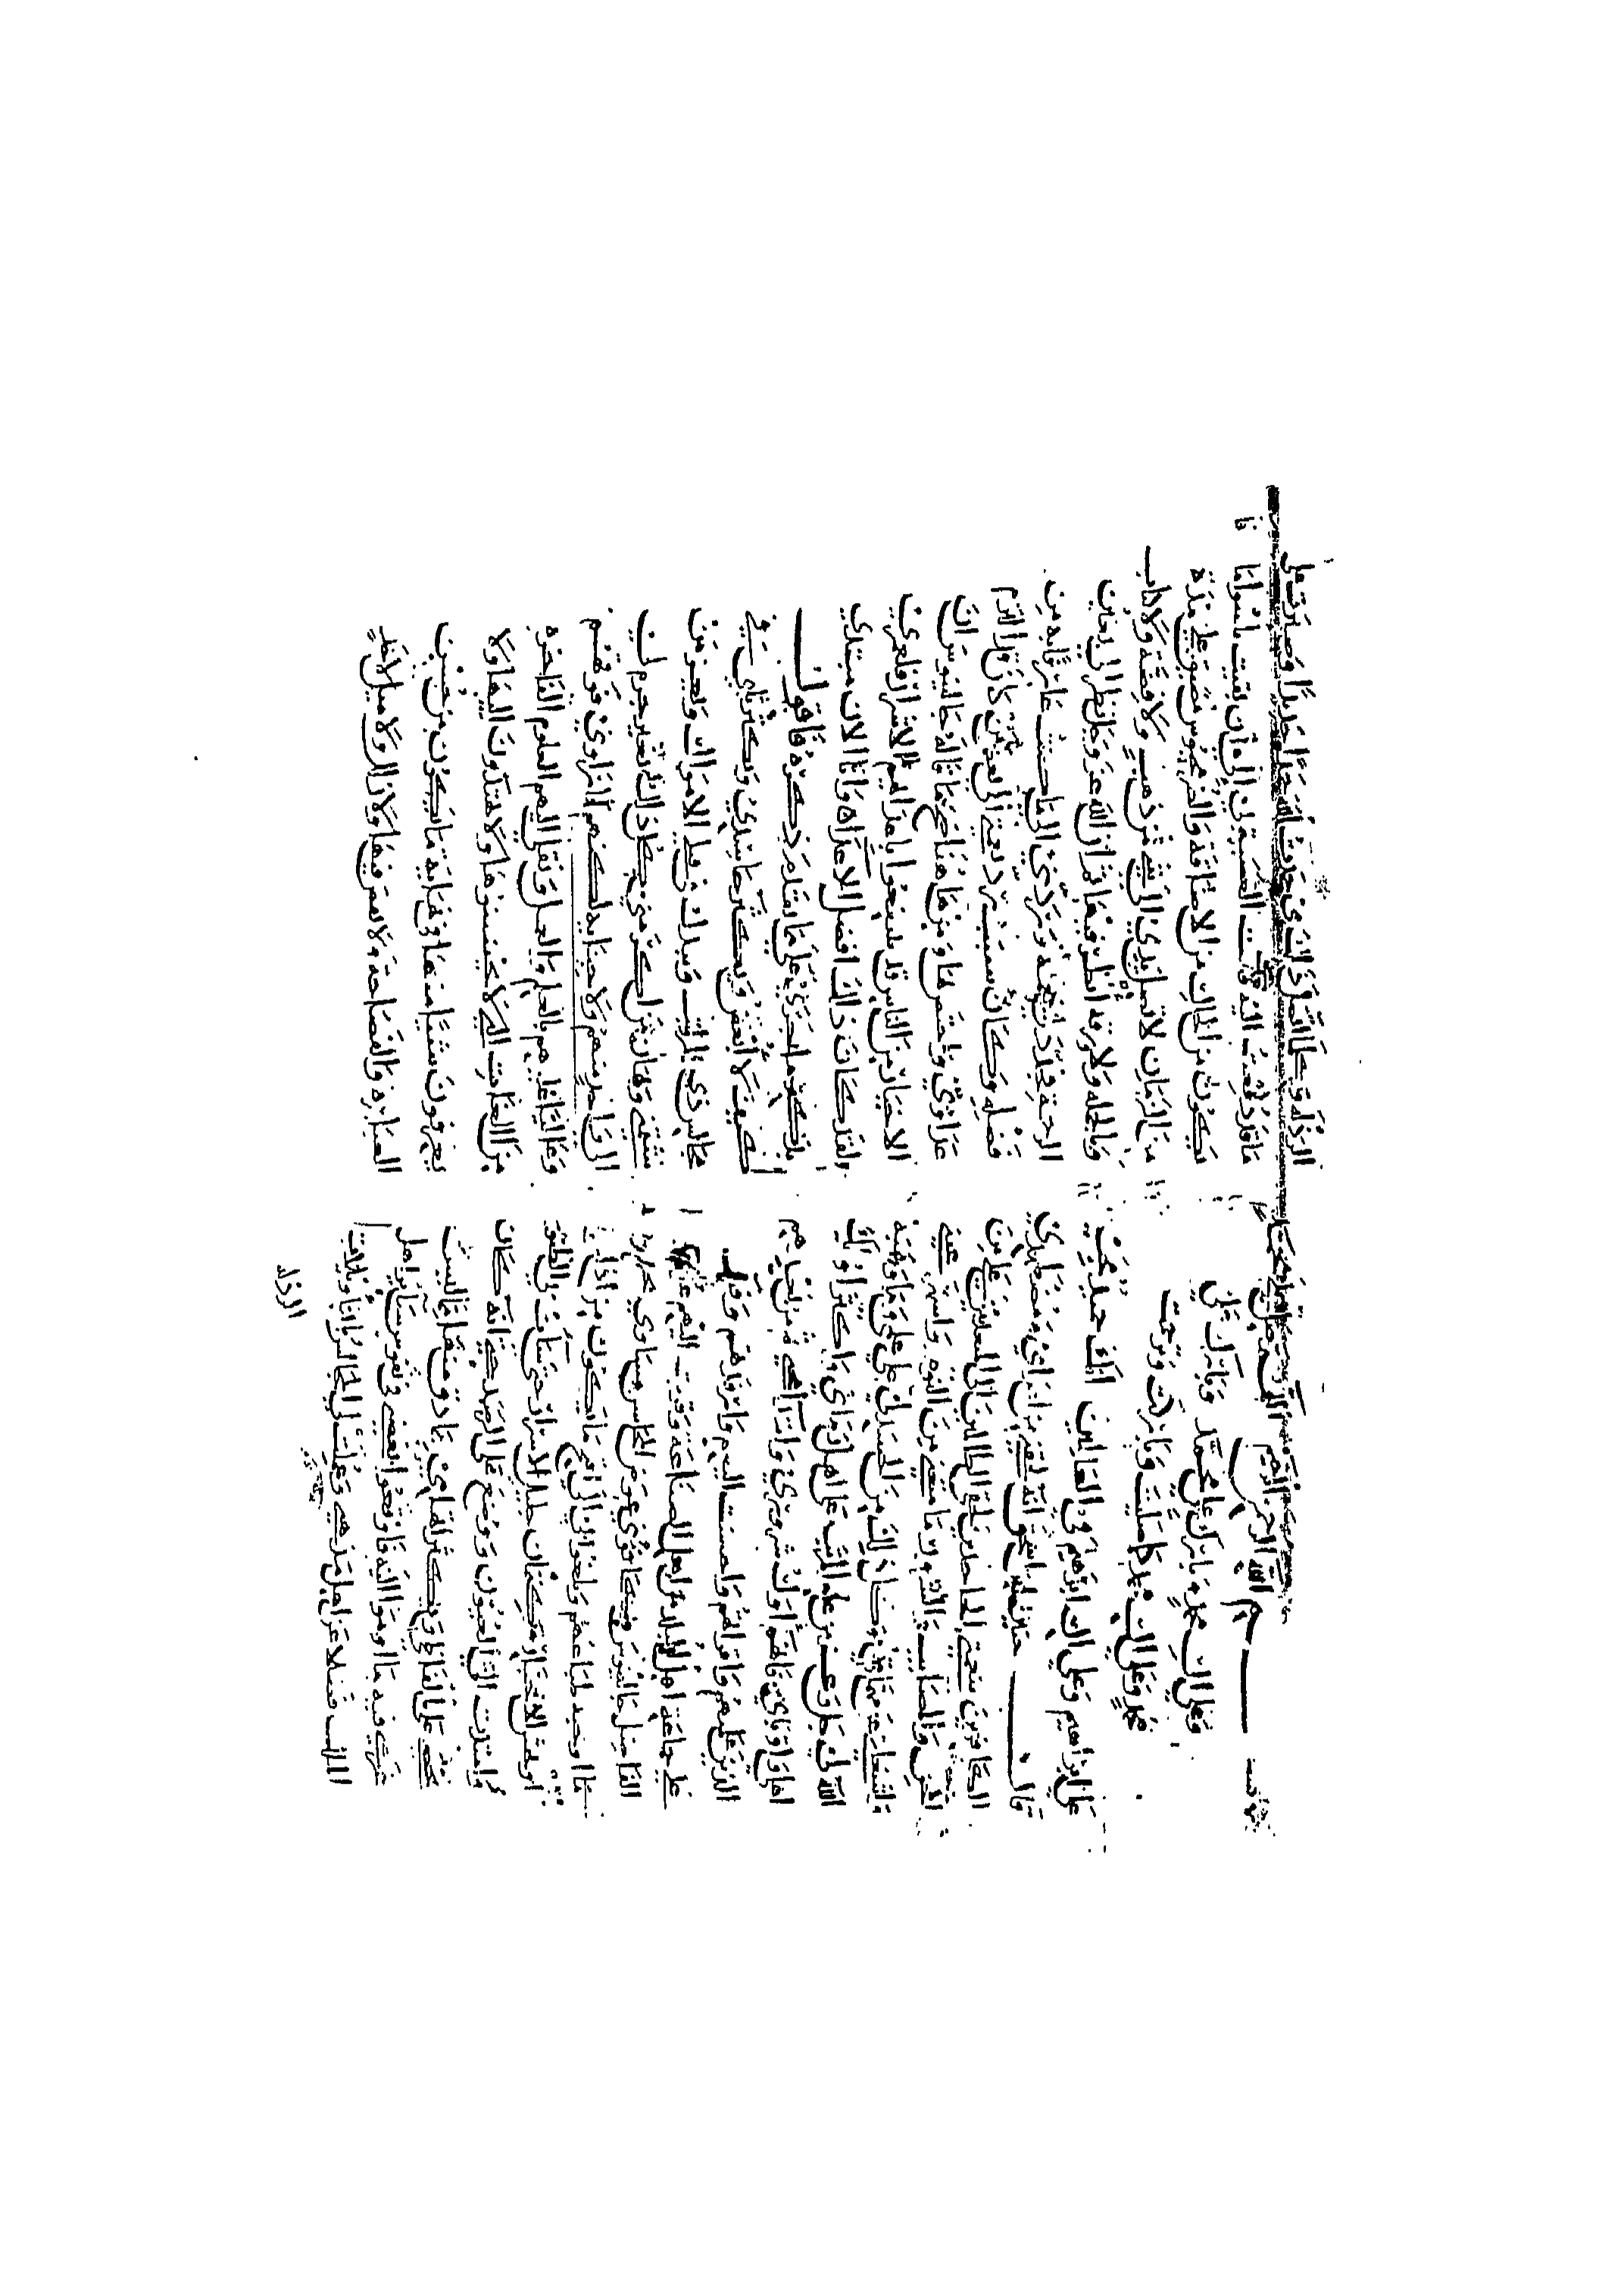 بسم الله الرحمن الرحيم
وعلى ال محمد وبارك على محمد وبارك على
محمد وعلى ال محمد كما صليت وباركت وترحمت
على ابراهيم وعلى ال ابراهيم في العالمين انك حميد مجيد
قال حنين بن اسحق انه لحقني من اعداي ومضطهدي
الكافرين بنعمتي الجاحدين لحقي الظالمين لي المتعدين علي من
المحن والمصايب والشرور ما منعني من النوم واسهر عيني
واشغلني عن مهماتي وكل ذلك من الحسد لي على علمي وما وهبه
الله لي من علو المرتبة على اهل زماني واكثر اوليك
اهلي واقرباي فانهم اول شروري وابتداء محني ثم من بعدهم
الذين علمتهم واقراتهم واحسنت اليهم وارفدتهم وفضلتهم
على جماعة اهل البلد من اهل الصناعة وقربت اليهم علوم
الفاضل جالينوس فكافوني عوض المحاسن مساوي بحسب
ما اوجبته طباعهم وبلغوا بي الى اقبح ما يكون من اذاعة
اوحش الاخبار وكتمان جميل الاسرار حتى ساءت بي الظنون
وامتدت الي العيون ووضع علي الرصد حتى انه كان
يحصى علي الفاظي ويكثر اتهامي بما دق منها مما ليس
غرضي فيه ما اوموا اليه فاوقعوا بغضتي في نفوس ساير اهل
الملل فضلا عن اهل مذهبي وعملت لي المجالس بالتاويلات
الرذله
الرذلة وكلما اتصل ذلك بي حمدت الله حمدا جديدا وصبرت على
ما قد دفعت اليه فالت القضية بي الى ان بقيت باسوا ما
يكون من الحال من الاضاقة والضر محبوس مضيق علي مدة
من الزمان لا تصل يدي الى شي من ذهب ولا فضة ولا كتاب
وبالجملة ولا ورقة انظر فيها ثم ان الله عز وجل نظر الي بعين
الرحمة فجدد لي نعمه وردني الى ما كنت عارفا به من
فضله وكان سبب رد نعمتي الي بعض من كان قد التزم
عداوتي واختص بها ومن هاهنا صح ما قاله جالينوس ان
الاخيار من الناس قد ينتفعوا باعدايهم الاشرار فلعمري
لقد كان ذلك افضل الاعداء وانا الان مبتدي
بذكر ما جرى علي مما تقدم ذكره فاقول
كيف لا ابغض ويكثر حاسدي ويكثر ثلبي في
مجالس ذوي المراتب وتبذل في قتلي الاموال ويعز من
شتمني ويهان من اكرمني كل ذلك بغير جرم لي
الى واحد منهم ولا جناية لكنهم لما راوني فوقهم
وعاليا عليهم بالعلم والعمل ونقلي اليهم العلوم الفاخرة
من اللغات التي لا يحسنونها ولا يهتدون اليها ولا
يعرفون شيئا منها في نهاية ما يكون من حسن
العبارة والفصاحة ولا نقص فيها ولا زلل ولا ميل لاحد